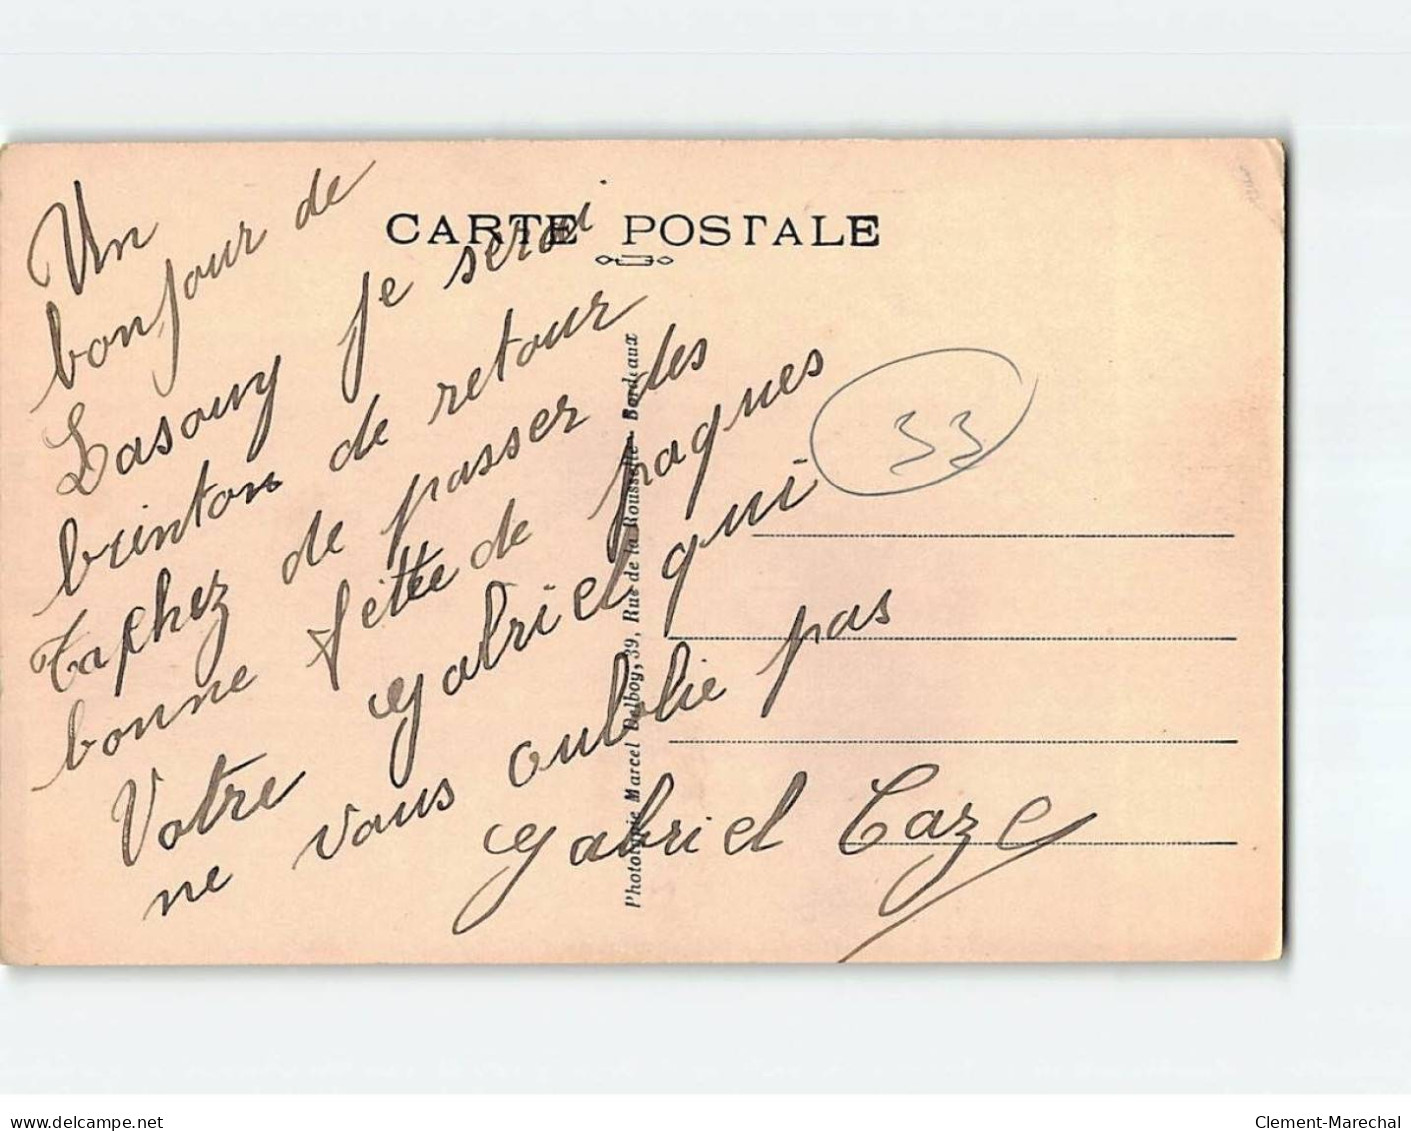 CARTE POSTALE
Un
bonjour de
Lasouvy je serai
brinton de retour
Taphez de passer des
bonne fette de paques
Votre Gabriel qui
ne vous oublie pas
Gabriel Caze
33
Phototypie Marcel Delboy, 39, Rue de la Rousselle - Bordeaux
delcampe.net
Clement-Marechal